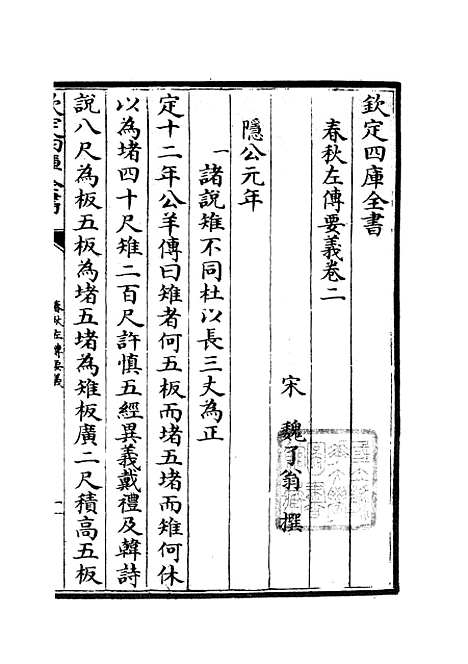 欽定四庫全書
春秋左傳要義卷二
宋 魏了翁 撰
隱公元年
一諸說雉不同杜以長三丈為正
定十二年公羊傳曰雉者何五板而堵五堵而雉何休
以為堵四十尺雉二百尺許慎五經異義戴禮及韓詩
說八尺為板五板為堵五堵為雉板廣二尺積高五板
欽定四庫全書
春秋左傳要義